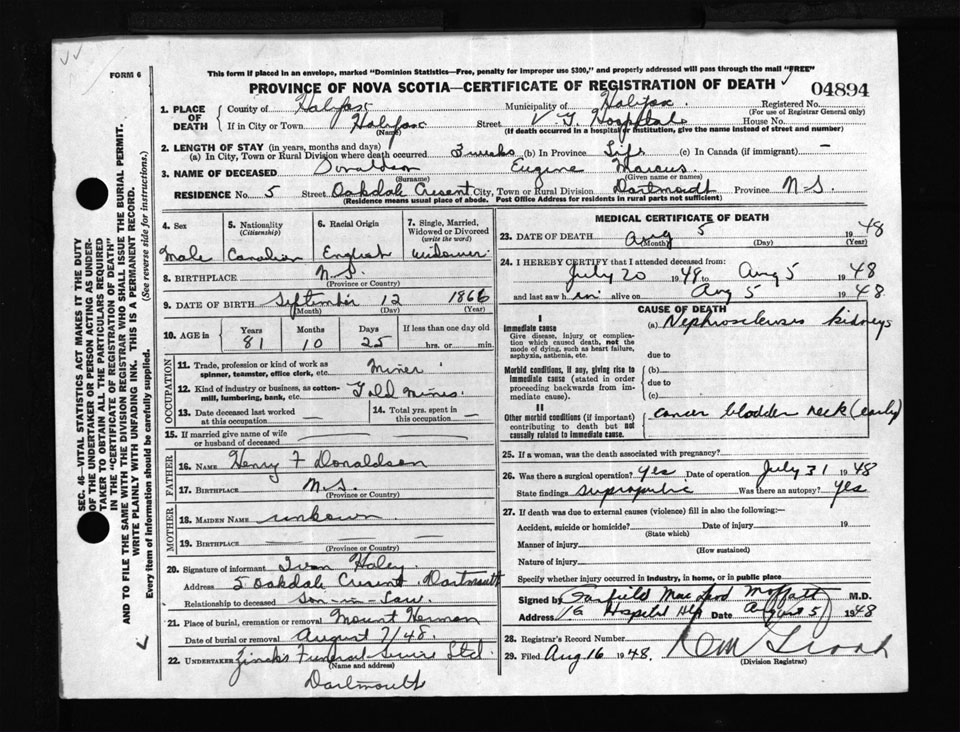 FORM 6
This form if placed in an envelope, marked "Dominion Statistics—Free, penalty for improper use $300," and properly addressed will pass through the mail "FREE"
PROVINCE OF NOVA SCOTIA—CERTIFICATE OF REGISTRATION OF DEATH
04894
1. PLACE OF DEATH
County of Halifax Municipality of Halifax Registered No.
(For use of Registrar General only)
If in City or Town Halifax Street V. G. Hospital House No.
(Name) (If death occurred in a hospital or institution, give the name instead of street and number)
2. LENGTH OF STAY (in years, months and days)
(a) In City, Town or Rural Division where death occurred 3 weeks (b) In Province Life (c) In Canada (if immigrant) —
3. NAME OF DECEASED Donaldson Eugene Marcus
(Surname) (Given name or names)
RESIDENCE No. 5 Street Oakdale Cresent City, Town or Rural Division Dartmouth Province N-S.
(Residence means usual place of abode. Post Office Address for residents in rural parts not sufficient)
4. Sex
5. Nationality (Citizenship)
6. Racial Origin
7. Single, Married, Widowed or Divorced (write the word)
Male Canadian English widower
8. BIRTHPLACE N.S.
(Province or Country)
9. DATE OF BIRTH September 12 1866
(Month) (Day) (Year)
10. AGE in Years Months Days If less than one day old
81 10 25 hrs. or min.
OCCUPATION
11. Trade, profession or kind of work as spinner, teamster, office clerk, etc. Miner
12. Kind of industry or business, as cotton-mill, lumbering, bank, etc. Gold Mines
13. Date deceased last worked at this occupation —
14. Total yrs. spent in this occupation —
15. If married give name of wife or husband of deceased
FATHER
16. NAME Henry F Donaldson
17. BIRTHPLACE N.S.
(Province or Country)
MOTHER
18. MAIDEN NAME unkown
19. BIRTHPLACE
(Province or Country)
20. Signature of informant Ivan Haley
Address 5 Oakdale Cresent Dartmouth
Relationship to deceased Son-in-Law
21. Place of burial, cremation or removal Mount Herman
Date of burial or removal August 7/48.
22. UNDERTAKER Zinck's Funeral Service Ltd.
(Name and address)
Dartmouth
MEDICAL CERTIFICATE OF DEATH
23. DATE OF DEATH Aug 5 1948
(Month) (Day) (Year)
24. I HEREBY CERTIFY that I attended deceased from:
July 20 1948 to Aug 5 1948
and last saw h im alive on Aug 5 1948.
CAUSE OF DEATH
I
Immediate cause
Give disease, injury or complication which caused death, not the mode of dying, such as heart failure, asphyxia, asthenia, etc.
(a) Nephrosclerosis kidneys
due to
Morbid conditions, if any, giving rise to immediate cause (stated in order proceeding backwards from immediate cause).
(b)
due to
(c)
II
Other morbid conditions (if important) contributing to death but not causally related to immediate cause.
cancer bladder neck (early)
25. If a woman, was the death associated with pregnancy?
26. Was there a surgical operation? Yes Date of operation July 31 1948
State findings suprapubic Was there an autopsy? Yes
27. If death was due to external causes (violence) fill in also the following:—
Accident, suicide or homicide? Date of injury 19
(State which)
Manner of injury
(How sustained)
Nature of injury
Specify whether injury occurred in industry, in home, or in public place
Signed by Garfield MacLeod Moffatt M.D.
Hospital Date August 5 1948
28. Registrar's Record Number
29. Filed Aug 16 1948.
(Division Registrar)
SEC. 46—VITAL STATISTICS ACT MAKES IT THE DUTY
OF THE UNDERTAKER OR PERSON ACTING AS UNDER-
TAKER TO OBTAIN ALL THE PARTICULARS REQUIRED
IN THE "CERTIFICATE OF REGISTRATION OF DEATH"
AND TO FILE THE SAME WITH THE DIVISION REGISTRAR WHO SHALL ISSUE THE BURIAL PERMIT.
WRITE PLAINLY WITH UNFADING INK. THIS IS A PERMANENT RECORD.
Every item of information should be carefully supplied. (See reverse side for instructions.)